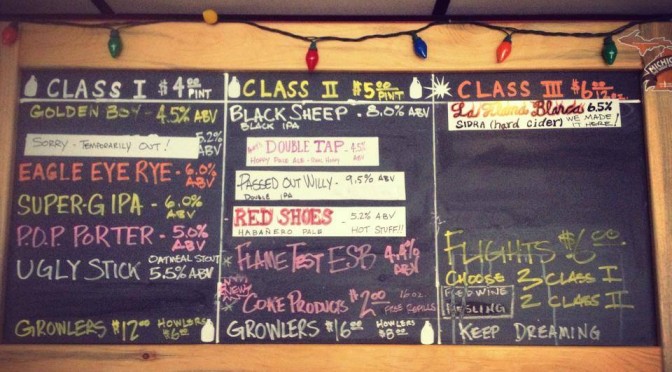 CLASS I $4.00 PINT
GOLDEN BOY - 4.5% ABV
SORRY - TEMPORARILY OUT! 5.2% ABV
EAGLE EYE RYE - 6.0% ABV
SUPER-G IPA - 6.0% ABV
P.O.P PORTER - 5.0% ABV
UGLY STICK OATMEAL STOUT 5.5% ABV
GROWLERS $12.00 HOWLERS $6.00
CLASS II $5.00 PINT
BLACK SHEEP - 8.0% ABV
BLACK IPA
DOUBLE TAP - 4.5% ABV
HOPPY PALE ALE
PASSED OUT WILLY - 9.5% ABV
DOUBLE IPA
RED SHOES - 5.2% ABV
HABAÑERO PALE HOT STUFF!!
FLAME TEST ESB 4.4% ABV
NEW!
COKE PRODUCTS $2.00 16 oz. FREE REFILLS
GROWLERS $16.00 HOWLERS $8.00
CLASS III $6.00
La Llorona Blanca 6.5%
SIDRA (hard cider) WE MADE IT HERE!
FLIGHTS $6.00
CHOOSE 3 CLASS I
2 CLASS II
RED WINE
KEEP DREAMING
MICHIG